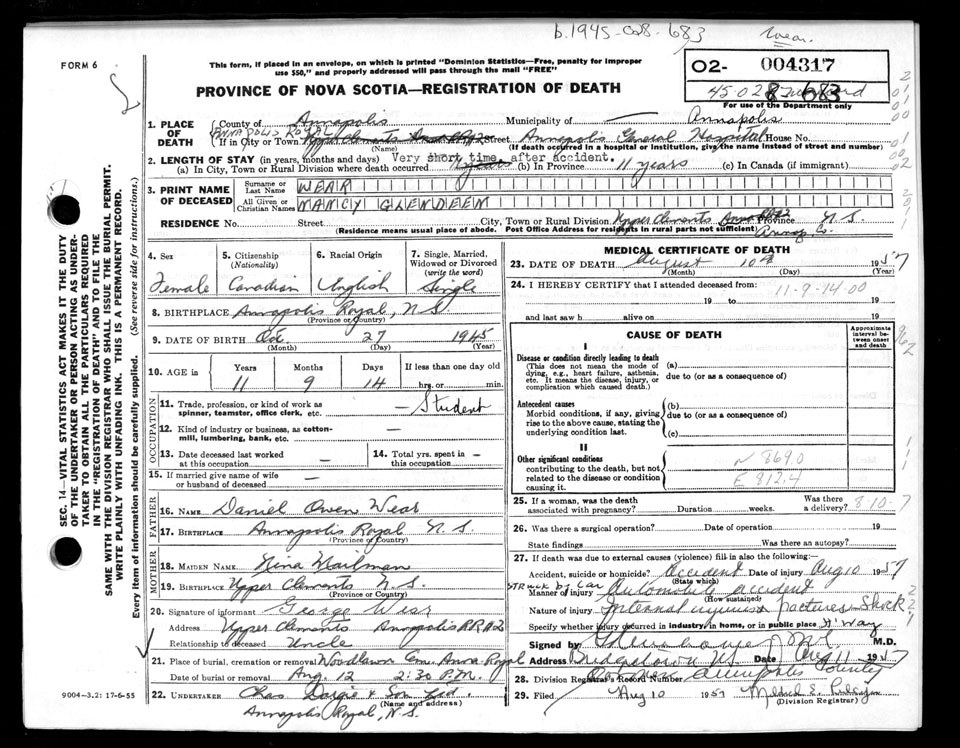 b. 1945-028-683
Wear.
FORM 6
This form, if placed in an envelope, on which is printed "Dominion Statistics—Free, penalty for improper
use $50," and properly addressed will pass through the mail "FREE"
PROVINCE OF NOVA SCOTIA—REGISTRATION OF DEATH
02- 004317
45-02
For use of the Department only
SEC. 14—VITAL STATISTICS ACT MAKES IT THE DUTY
OF THE UNDERTAKER OR PERSON ACTING AS UNDER-
TAKER TO OBTAIN ALL THE PARTICULARS REQUIRED
IN THE "REGISTRATION OF DEATH" AND TO FILE THE
SAME WITH THE DIVISION REGISTRAR WHO SHALL ISSUE THE BURIAL PERMIT.
WRITE PLAINLY WITH UNFADING INK. THIS IS A PERMANENT RECORD.
Every item of information should be carefully supplied. (See reverse side for instructions.)
1. PLACE OF DEATH
County of Annapolis Municipality of — Annapolis
ANNAPOLIS ROYAL
If in City or Town Upper Clements Street Annapolis General Hospital House No.
(Name) (If death occurred in a hospital or institution, give the name instead of street and number)
2. LENGTH OF STAY (in years, months and days) Very short time, after accident.
(a) In City, Town or Rural Division where death occurred (b) In Province 11 years (c) In Canada (if immigrant)
3. PRINT NAME OF DECEASED
Surname or Last Name WEAR
All Given or Christian Names NANCY GLENDEEN
RESIDENCE No. Street City, Town or Rural Division Upper Clements Province N.S.
(Residence means usual place of abode. Post Office Address for residents in rural parts not sufficient) Annap. Co.
4. Sex
Female
5. Citizenship (Nationality)
Canadian
6. Racial Origin
English
7. Single, Married, Widowed or Divorced (write the word)
Single
8. BIRTHPLACE Annapolis Royal, N.S.
(Province or Country)
9. DATE OF BIRTH Oct. 27 1945
(Month) (Day) (Year)
10. AGE in Years Months Days If less than one day old
11 9 14 hrs. or min.
OCCUPATION
11. Trade, profession, or kind of work as spinner, teamster, office clerk, etc. — Student
12. Kind of industry or business, as cotton-mill, lumbering, bank, etc. —
13. Date deceased last worked at this occupation —
14. Total yrs. spent in this occupation —
15. If married give name of wife or husband of deceased —
FATHER
16. Name Daniel Owen Wear
17. Birthplace Annapolis Royal N.S.
(Province or Country)
MOTHER
18. Maiden Name Nina Mailman
19. Birthplace Upper Clements N.S.
(Province or Country)
20. Signature of informant George Wear
Address Upper Clements Annapolis RR #2
Relationship to deceased Uncle
21. Place of burial, cremation or removal Woodlawn Cem. Anna. Royal
Date of burial or removal Aug. 12 2:30 P.M.
22. UNDERTAKER Chas Dargie & Son Ltd.
(Name and address)
Annapolis Royal, N.S.
9004-3.2: 17-6-55
MEDICAL CERTIFICATE OF DEATH
23. DATE OF DEATH August 10th 1957
(Month) (Day) (Year)
24. I HEREBY CERTIFY that I attended deceased from: 11-9-14-00
19 to 19
and last saw h alive on 19
CAUSE OF DEATH
Approximate interval between onset and death
I
Disease or condition directly leading to death
(This does not mean the mode of dying, e.g., heart failure, asthenia, etc. It means the disease, injury, or complication which caused death.)
(a)
due to (or as a consequence of)
Antecedent causes
Morbid conditions, if any, giving rise to the above cause, stating the underlying condition last.
(b)
due to (or as a consequence of)
(c)
II
Other significant conditions
contributing to the death, but not related to the disease or condition causing it.
N 869.0
E 812.4
25. If a woman, was the death associated with pregnancy? Duration weeks. Was there a delivery? 8-10-7
26. Was there a surgical operation? Date of operation 19
State findings Was there an autopsy?
27. If death was due to external causes (violence) fill in also the following:
Accident, suicide or homicide? Accident Date of injury Aug 10 1957
(State which)
STRUCK by Car
Manner of injury Automobile accident
(How sustained)
Nature of injury Internal injuries fractures Shock
Specify whether injury occurred in industry, in home, or in public place H'way
Signed by M.D.
Address Bridgetown N.S. Date Aug 11 1957
28. Division Registrar's Record Number Annapolis County
29. Filed Aug 10 1957 Mildred E.
(Division Registrar)